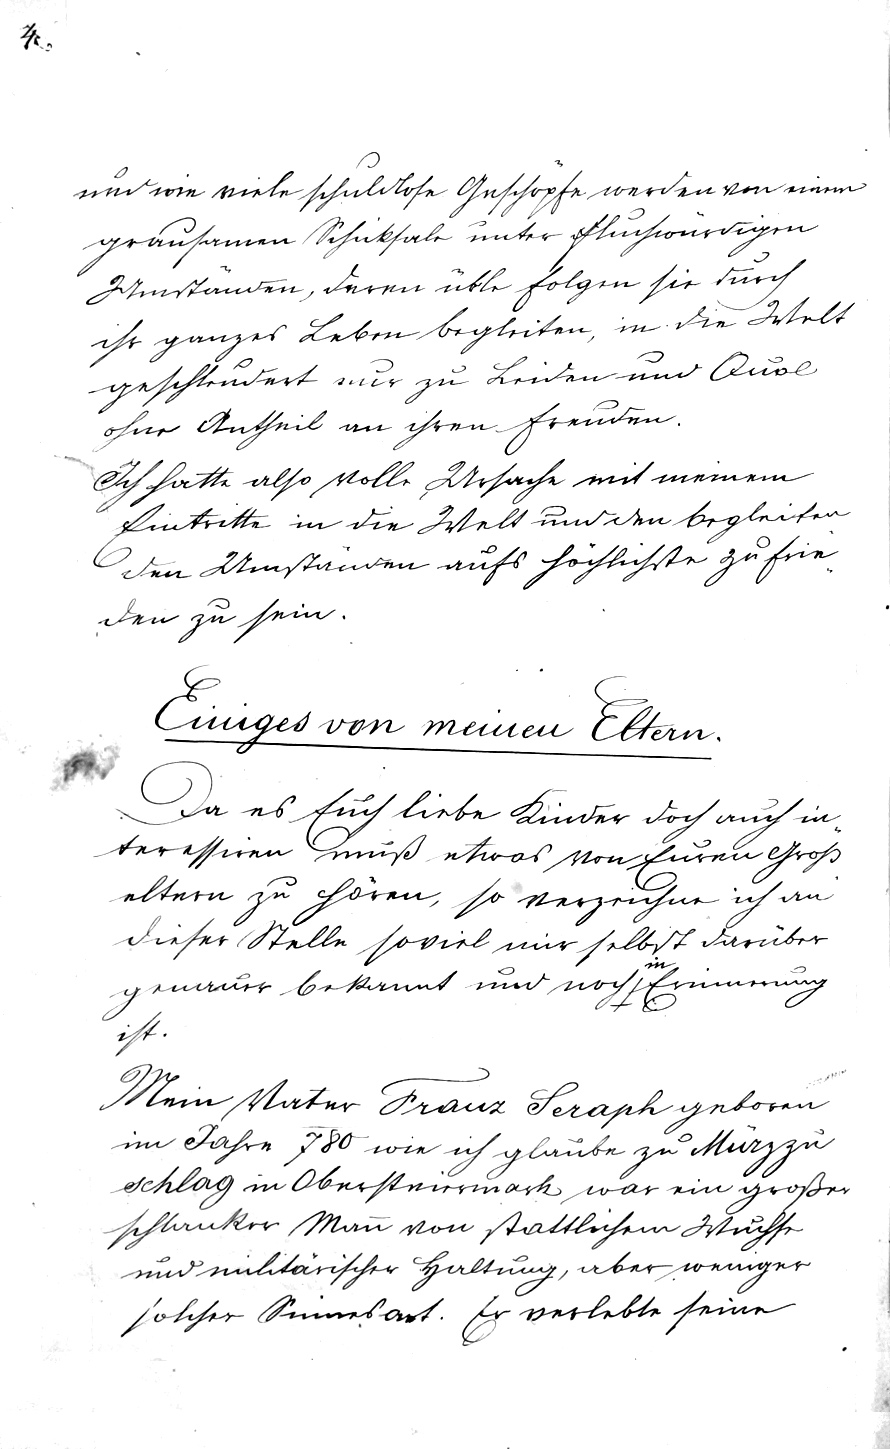 4.
und wie viele schuldlose Geschöpfe werden von einem
grausamen Schicksale unter fluchwürdigen
Umständen, deren üble Folgen sie durch
ihr ganzes Leben begleiten, in die Welt
geschleudert nur zu Leiden und Qual
ohne Antheil an ihren Freuden.
Ich hatte also volle Ursache mit meinem
Eintritte in die Welt und den begleiten
den Umständen aufs höchlichste zufrie„
den zu sein.
Einiges von meinen Eltern.
Da es Euch liebe Kinder doch auch in„
teressiren muß etwas von Euren Groß
eltern zu hören, so verzeichne ich an
dieser Stelle soviel mir selbst darüber
genauer bekannt und noch in Erinnerung
ist.
Mein Vater Franz Seraph geboren
im Jahre 780 wie ich glaube zu Mürzzu
schlag in Obersteiermark war ein großer
schlanker Mañ von stattlichem Wuchse
und militärischer Haltung, aber weniger
solcher Sinnesart. Er verlebte seine